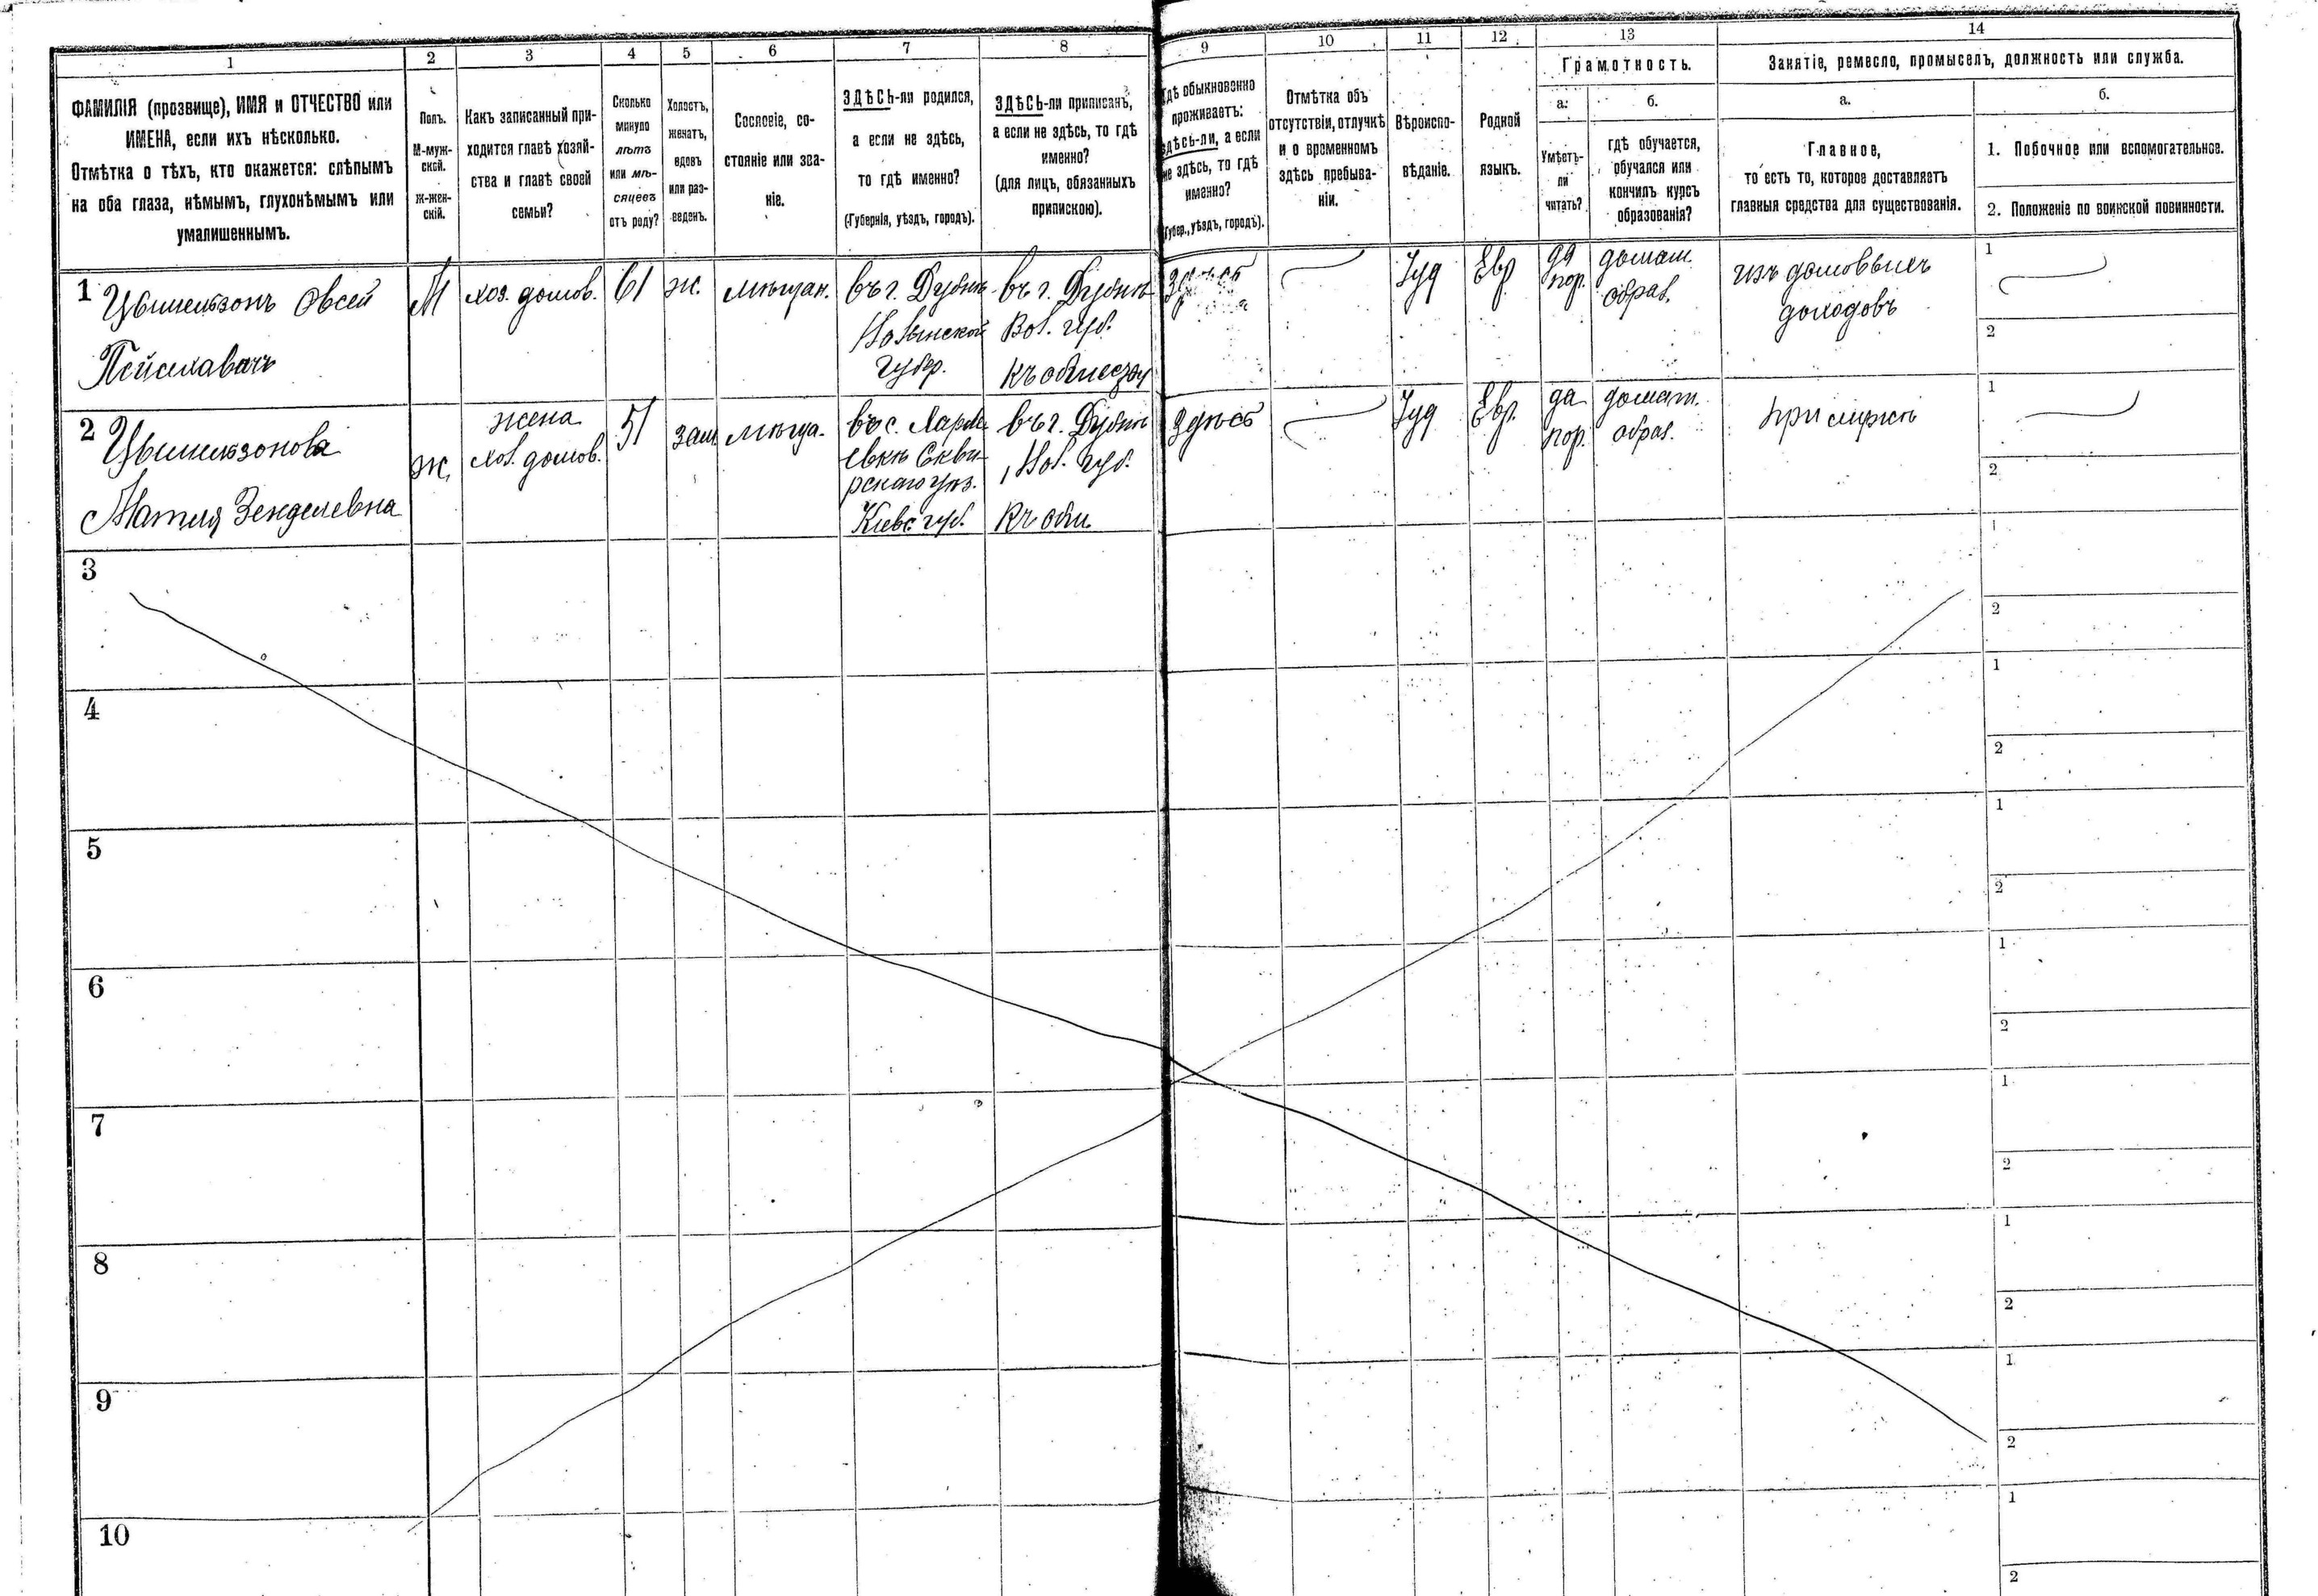 1 2 3 4 5 6 7 8 9 10 11 12 13 14
ФАМИЛІЯ (прозвище), ИМЯ и ОТЧЕСТВО или
ИМЕНА, если ихъ нѣсколько.
Отмѣтка о тѣхъ, кто окажется: слѣпымъ
на оба глаза, нѣмымъ, глухонѣмымъ или
умалишеннымъ.
Полъ.
М-муж-
ской.
Ж-жен-
скій.
Какъ записанный при-
ходится главѣ хозяй-
ства и главѣ своей
семьи?
Сколько
минуло
лѣтъ
или мѣ-
сяцевъ
отъ роду?
Холостъ,
женатъ,
вдовъ
или раз-
веденъ.
Сословіе, со-
стояніе или зва-
ніе.
ЗДѢСЬ-ли родился,
а если не здѣсь,
то гдѣ именно?
(Губернія, уѣздъ, городъ).
ЗДѢСЬ-ли приписанъ,
а если не здѣсь, то гдѣ
именно?
(для лицъ, обязанныхъ
припискою).
Гдѣ обыкновенно
проживаетъ:
здѣсь-ли, а если
не здѣсь, то гдѣ
именно?
(Губер., уѣздъ, городъ).
Отмѣтка объ
отсутствіи, отлучкѣ
и о временномъ
здѣсь пребыва-
ніи.
Вѣроиспо-
вѣданіе.
Родной
языкъ.
Грамотность.
а.
Умѣетъ-
ли
читать?
б.
гдѣ обучается,
обучался или
кончилъ курсъ
образованія?
Занятіе, ремесло, промыселъ, должность или служба.
а.
Главное,
то есть то, которое доставляетъ
главныя средства для существованія.
б.
1. Побочное или вспомогательное.
2. Положеніе по воинской повинности.
1
Цвишельзонъ Овсей
М
хоз. домов.
61
ж.
мѣщан.
въ г. Дубнѣ
Волынской
губер.
въ г. Дубнѣ
Вол. губ.
Здѣсь
Іуд
Евр
да
пор.
домаш.
образ.
изъ домовыхъ
доходовъ
1
2
2
Ж.
жена
хоз. домов.
51
зам
мѣща.
въ с.
Скви-
рскаго уѣз.
Кіевс губ.
въ г. Дубнѣ
Вол. губ.
къ общ
Здѣсь
Іуд
Евр.
да
пор.
домаш.
образ.
при мужѣ
1
2
3
1
2
4
1
2
5
1
2
6
1
2
7
1
2
8
1
2
9
1
2
10
1
2